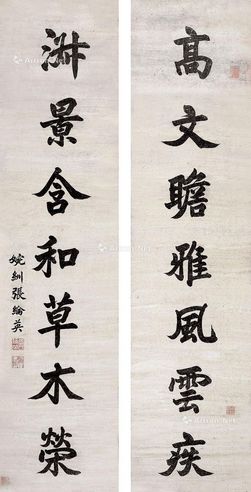 高文瞻雅風雲疾
淋景含和草木榮
婉紃張綸英